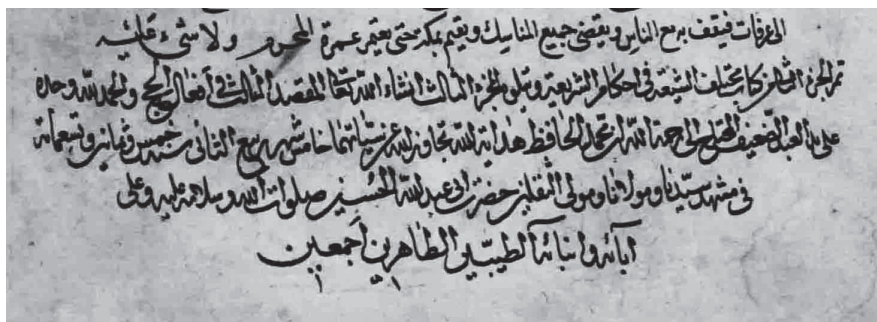 الى عرفات فيقف به مع الناس ويقضى جميع المناسك ويقيم بمكة حتى يعتمر عمرة المحرم ولا شىء عليه
تم الجزء الثانى من كتاب مختلف الشيعة فى احكام الشريعة ويتلوه الجزء الثالث انشاء الله تعالى المقصد الثالث فى أفعال الحج والحمد لله وحده
على يد العبد الضعيف المحتاج الى رحمة الله ابن محمد الحافظ هداية الله تجاوز الله عن سيئاتهما خامس شهر ربيع الثانى سنة خمس وثمانين وتسعمائة
فى مشهد سيدنا ومولانا ومولى الثقلين حضرت ابى عبد الله الحسين صلوات الله وسلامه عليه وعلى
آبائه وابنائه الطيبين الطاهرين أجمعين